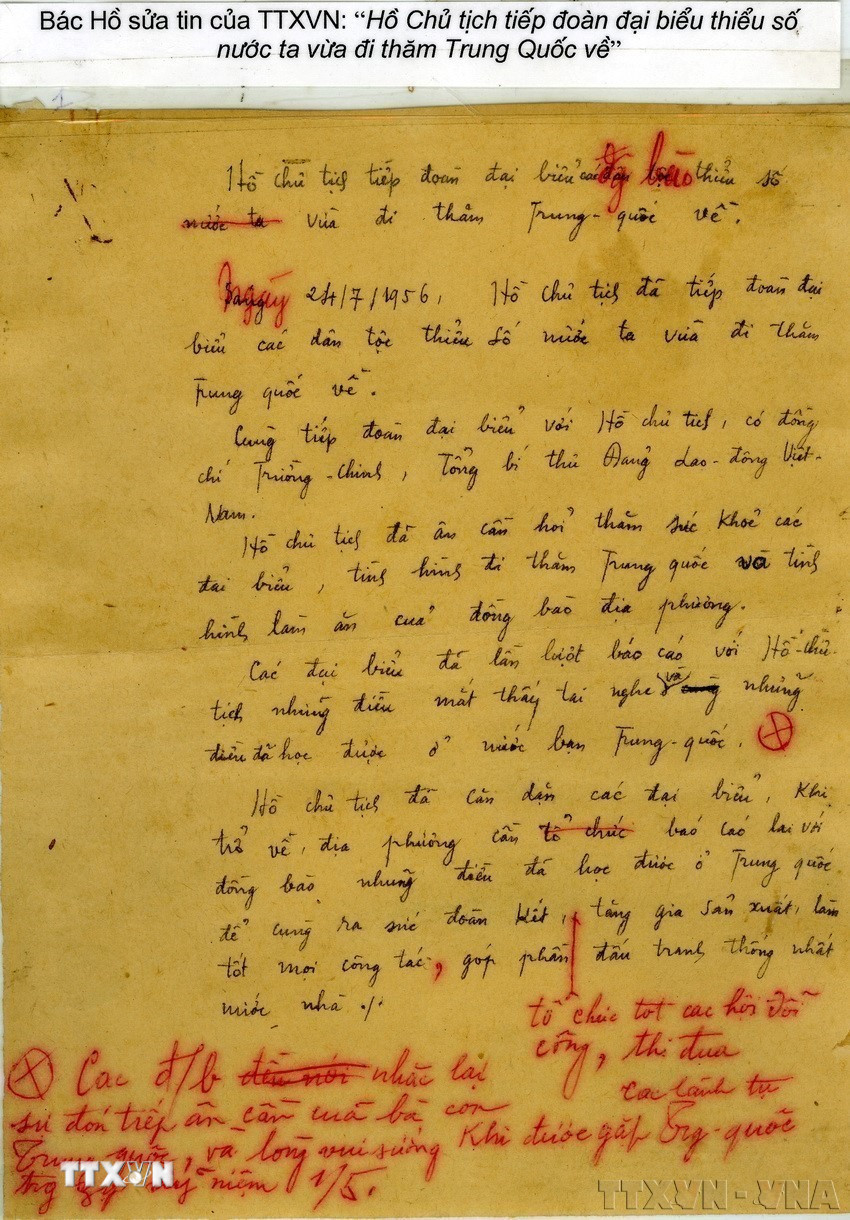 Bác Hồ sửa tin của TTXVN: “Hồ Chủ tịch tiếp đoàn đại biểu thiểu số
nước ta vừa đi thăm Trung Quốc về”
1
Hồ chủ tịch tiếp đoàn đại biểu các đg bào thiểu số
nước ta vừa đi thăm Trung-quốc về.
Ngày 24/7/1956, Hồ chủ tịch đã tiếp đoàn đại
biểu các dân tộc thiểu số nước ta vừa đi thăm
Trung quốc về.
Cùng tiếp đoàn đại biểu với Hồ chủ tịch, có đồng
chí Trường-Chinh, Tổng bí thư Đảng Lao-động Việt-
Nam.
Hồ chủ tịch đã ân cần hỏi thăm sức khoẻ các
đại biểu, tình hình đi thăm Trung quốc và tình
hình làm ăn của đồng bào địa phương.
Các đại biểu đã lần lượt báo cáo với Hồ-chủ-
tịch những điều mắt thấy tai nghe và những
điều đã học được ở nước bạn Trung-quốc.
Hồ chủ tịch đã căn dặn các đại biểu, khi
trở về, địa phương cần tổ chức báo cáo lại với
đồng bào những điều đã học được ở Trung quốc
để cùng ra sức đoàn kết, tăng gia sản xuất, làm
tốt mọi công tác, góp phần đấu tranh thống nhất
nước nhà ./.
tổ chức tot cac hội đổi
công, thi đua
Cac đ/b nhắc lại
sự đón tiếp ân cần cuả bà con
Trung quốc, và lòng vui sướng khi được gặp các lãnh tụ Trg-quốc
trg kỷ niệm 1/5.
TTXVN
TTXVN-VNA